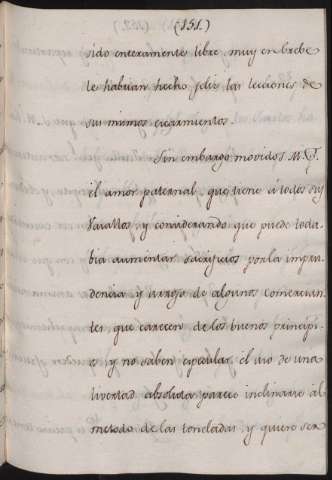 (151.)
sido enteramente libre, muy en brebe
le habrian hecho feliz las lecciones de
sus mismos escarmientos.
Sin embargo movidos M.
el amor paternal, que tiene á todos sus
Vasallos, y considerando que puede toda-
bia aumentar sacrificios por la impru-
dencia y arrojo de algunos comercian-
tes, que carecen de los buenos principi-
os, y no saben especular, el uso de una
livertad absoluta, parece inclinarse al
metodo de las toneladas, y quiero ser